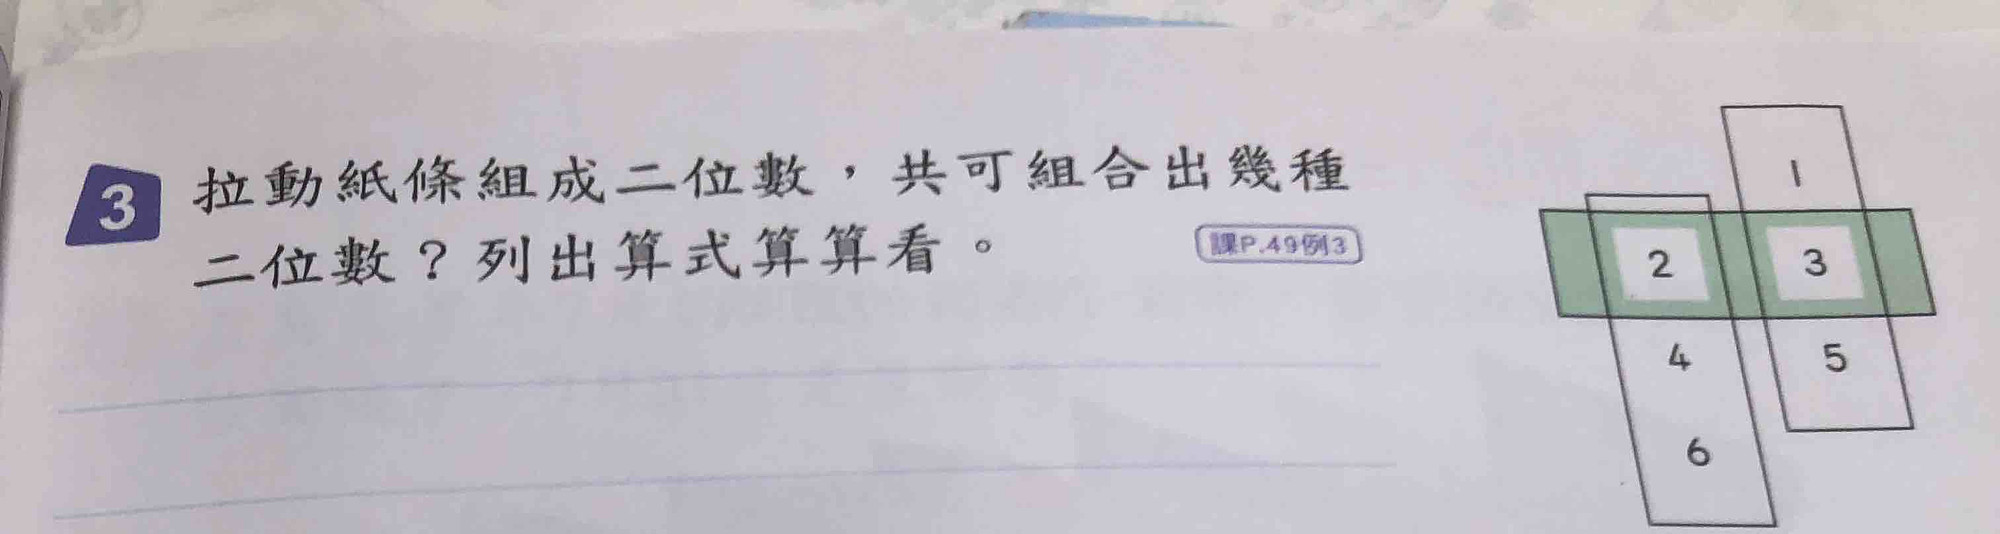 3 拉動紙條組成二位數，共可組合出幾種
二位數？列出算式算算看。 課P.49例3
1
2 3
4 5
6